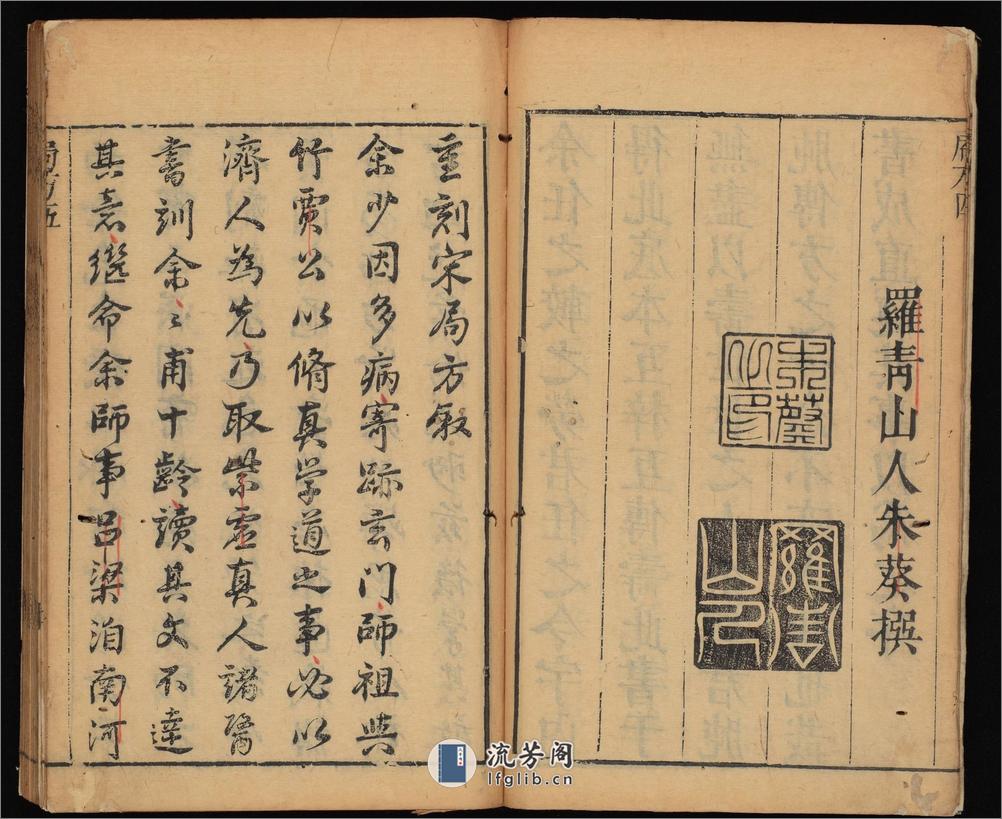 羅青山人朱葵撰
朱葵之印
羅青山人
重刻宋局方敘
余少因多病寄跡玄門師祖與
竹賈公以脩真学道之事必以
濟人為先乃取紫虛真人諸醫
書訓余〻甫十齡讀其文不達
其意繼命余師事呂梁洎南河
局方五
流芳阁
lfglib.cn